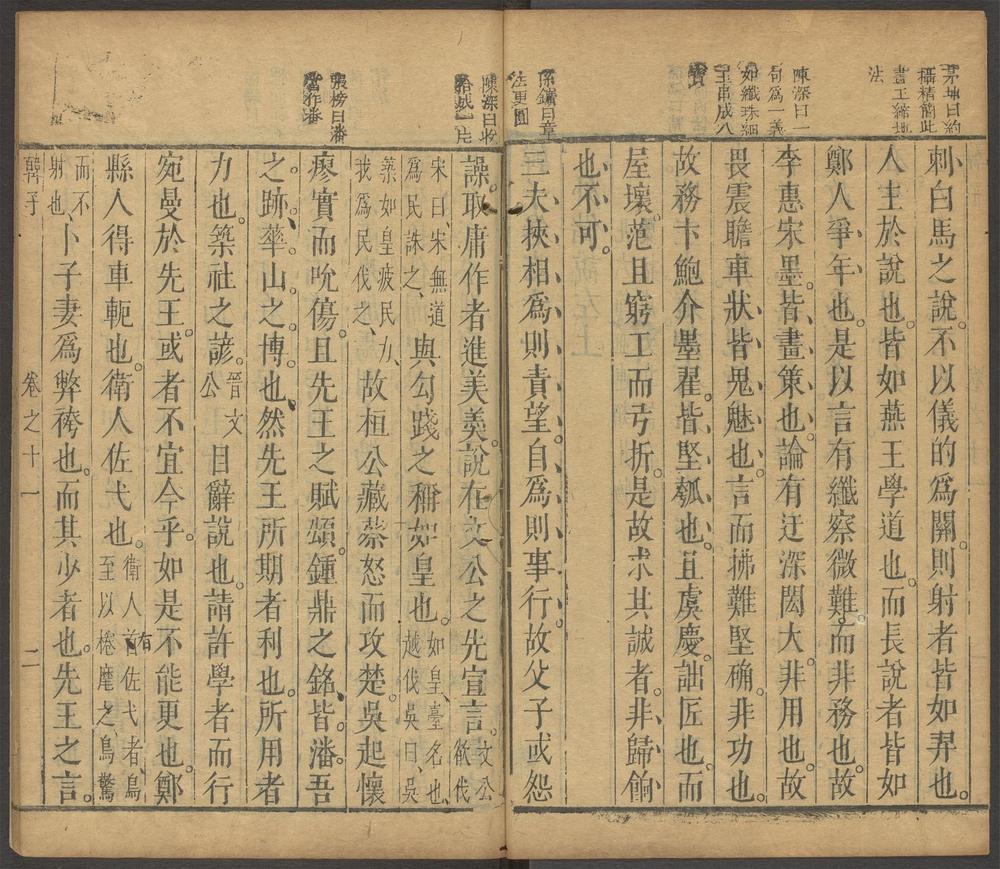 茅坤曰約
攝精簡此
畫工締地
法
陳深曰一
句為一義
如纖珠細
呈串成八
寶
孫鑛曰章
法更圓
刺白馬之說。不以儀的爲關。則射者皆如羿也。
人主於說也。皆如燕王學道也。而長說者皆如
鄭人爭年也。是以言有纖察微難。而非務也。故
李惠宋墨。皆畫策也。論有迂深閎大。非用也。故
畏震瞻車狀。皆鬼魅也。言而拂難堅确。非功也。
故務卞鮑介墨翟。皆堅瓠也。且虞慶。詘匠也。而
屋壞。范且窮工而弓折。是故求其誠者。非歸餉
也不可。
三夫挾相爲則責望。自爲則事行。故父子或怨
陳深曰收
拾成一片
張榜曰潘
當作播
譟。取庸作者進美羹。說在文公之先宣言。文公欲伐
宋曰、宋無道
爲民誅之、與勾踐之稱如皇也。如皇、臺名也、越伐吳曰、吳
築如皇疲民力、
我爲民伐之、故桓公藏蔡怒而攻楚。吳起懷
瘳實而吮傷。且先王之賦頌。鍾鼎之銘。皆潘吾
之跡。華山之博也。然先王所期者利也。所用者
力也。築社之諺。晉文公目辭說也。請許學者而行
宛曼於先王。或者不宜今乎。如是不能更也。鄭
縣人得車軛也。衛人佐弋也。衛人有佐弋者、鳥至以棬麾之、鳥驚
而不
射也、卜子妻爲弊袴也。而其少者也。先王之言。
韓子 卷之十一 二